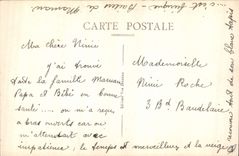 CARTE POSTALE
Ma chère Ninie
j'ai trouvé
toute la famille Maman
Papa et Bibi en bonne
santé.... on m'a reçu
à bras ouverts car on
m'attendait avec
impatience; le temps est merveilleux et la neige
Mademoiselle
Ninie Roche
3 Bd Baudelaire